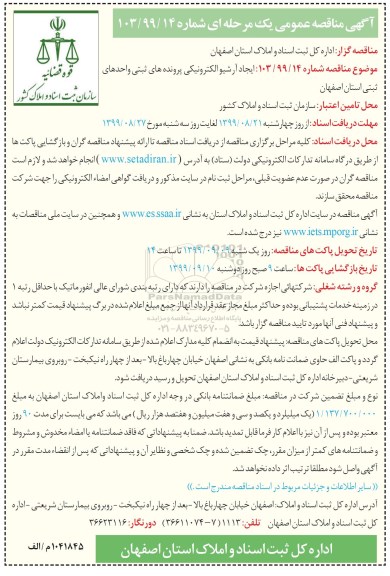 آگهی مناقصه عمومی یک مرحله ای شماره ۱۰۳/۹۹/۱۴
قوه قضائیه
سازمان ثبت اسناد و املاک کشور
مناقصه گزار: اداره کل ثبت اسناد و املاک استان اصفهان
موضوع مناقصه شماره ۱۰۳/۹۹/۱۴: ایجاد آرشیو الکترونیکی پرونده های ثبتی واحدهای
ثبتی استان اصفهان
محل تامین اعتبار: سازمان ثبت اسناد و املاک کشور
مهلت دریافت اسناد: از روز چهارشنبه ۱۳۹۹/۰۸/۲۱ لغایت روز سه شنبه مورخ ۱۳۹۹/۰۸/۲۷
محل دریافت اسناد: کلیه مراحل برگزاری مناقصه از دریافت اسناد مناقصه تا ارائه پیشنهاد مناقصه گران و بازگشایی پاکت ها
از طریق درگاه سامانه تدارکات الکترونیکی دولت (ستاد) به آدرس ( www.setadiran.ir ) انجام خواهد شد و لازم است
مناقصه گران در صورت عدم عضویت قبلی، مراحل ثبت نام در سایت مذکور و دریافت گواهی امضاء الکترونیکی را جهت شرکت
مناقصه محقق سازند.
آگهی مناقصه در سایت اداره کل ثبت اسناد و املاک استان به نشانی www.es.ssaa.ir و همچنین در سایت ملی مناقصات به
نشانی www.iets.mporg.ir نیز درج شده است.
تاریخ تحویل پاکت های مناقصه: روز یک شنبه ۱۳۹۹/۰۹/۰۹ تا ساعت ۱۴
تاریخ بازگشایی پاکت ها: ساعت ۹ صبح روز دوشنبه ۱۳۹۹/۰۹/۱۰
گروه و رشته شغلی: شرکتهائی اجازه شرکت در مناقصه را دارند که دارای رتبه بندی شورای عالی انفورماتیک با حداقل رتبه ۱
در زمینه خدمات پشتیبانی بوده و حداکثر مبلغ مجاز عقد قرارداد آنها از جمع مبلغ اعلام شده در برگ پیشنهاد قیمت کمتر نباشد
و پیشنهاد فنی آنها مورد تایید مناقصه گزار باشد.
محل تحویل پاکت های مناقصه: پیشنهاد قیمت به انضمام کلیه مدارک اعلام شده از طریق سامانه تدارکات الکترونیک دولت اعلام
گردد و پاکت الف حاوی ضمانت نامه بانکی به نشانی اصفهان خیابان چهارباغ بالا - بعد از چهار راه نیکبخت - روبروی بیمارستان
شریعتی - دبیرخانه اداره کل ثبت اسناد و املاک استان اصفهان تحویل و رسید دریافت شود.
نوع و مبلغ تضمین شرکت در مناقصه: مبلغ ضمانتنامه بانکی در وجه اداره کل ثبت اسناد و املاک استان اصفهان به مبلغ
۱/۱۳۷/۷۰۰/۰۰۰ (یک میلیارد و یکصد و سی و هفت میلیون و هفتصد هزار ریال) می باشد که می بایست برای مدت ۹۰ روز
معتبر بوده و پس از آن نیز با اعلام کارفرما قابل تمدید باشد. ضمنا به پیشنهاداتی که فاقد ضمانتنامه یا امضاء مخدوش و مشروط
و ضمانتنامه های کمتر از میزان مقرر، چک تضمین شده و چک شخصی و نظایر آن و پیشنهاداتی که پس از انقضاء مدت مقرر در
آگهی واصل شود مطلقا ترتیب اثر داده نخواهد شد.
(( سایر اطلاعات و جزئیات مربوط در اسناد مناقصه مندرج است. ))
آدرس اداره کل ثبت اسناد و املاک: اصفهان خیابان چهارباغ بالا - بعد از چهار راه نیکبخت - روبروی بیمارستان شریعتی - اداره
کل ثبت اسناد و املاک استان اصفهان تلفن: ۱۱۱۳ (۷-۳۶۶۱۱۰۷۴) دورنگار: ۳۶۶۲۳۱۱۶
اداره کل ثبت اسناد و املاک استان اصفهان
۱۰۴۱۸۴۵/م الف
ParsNamadData
پایگاه اطلاع رسانی مناقصه و مزایده
۰۲۱-۸۸۳۴۹۶۷۰-۵